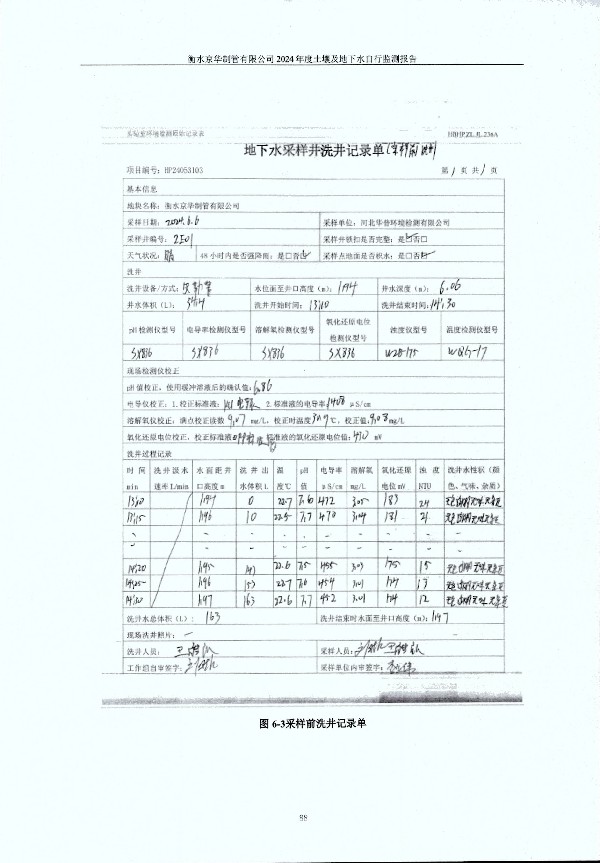 衡水京华制管有限公司2024年度土壤及地下水自行监测报告
实验室环境监测原始记录表 HBHPZL JL 236A
地下水采样井洗井记录单(采样前洗井)
项目编号：HP24053103 第 1 页 共 1 页
基本信息
地块名称：衡水京华制管有限公司
采样日期：2024.6.6 采样单位：河北华普环境检测有限公司
采样井编号：2E01 采样井锁扣是否完整：是□否□
天气状况：晴 48小时内是否强降雨：是□否☑ 采样点地面是否积水：是□否☑
洗井
洗井设备/方式： 水位面至井口高度（m）：1.94 井水深度（m）：6.06
井水体积（L）： 洗井开始时间：13:10 洗井结束时间：14:30
pH检测仪型号 电导率检测仪型号 溶解氧检测仪型号 氧化还原电位检测仪型号 浊度仪型号 温度检测仪型号
SX836 SX836 SX836 SX836
现场检测仪校正
pH值校正，使用缓冲溶液后的确认值：6.86
电导仪校正：1.校正标准液： 2.标准液的电导率：1408 μS/cm
溶解氧仪校正：满点校正读数 mg/L，校正时温度 ℃，校正值： mg/L
氧化还原电位校正，校正标准液： 标准液的氧化还原电位值：430 mV
洗井过程记录
时间 min 洗井汲水速率L/min 水面距井口高度m 洗井出水体积L 温度℃ pH值 电导率μS/cm 溶解氧mg/L 氧化还原电位mV 浊度NTU 洗井水性状（颜色、气味、杂质）
13:10 1.94 0 22.7 7.6 472 3.05 183 24
13:15 1.96 10 22.5 7.7 470 3.04 181 21
- - - - - - - - -
- - - - - - - - -
14:20 1.95 143 22.6 7.5 455 3.03 175 15
14:25 1.96 153 22.7 7.6 454 3.01 174 13
14:30 1.97 163 22.6 7.7 452 3.01 174 12
洗井水总体积（L）：163 洗井结束时水面至井口高度（m）：1.97
现场洗井照片：—
洗井人员： 采样人员：
工作组自审签字： 采样单位内审签字：
图 6-3采样前洗井记录单
88